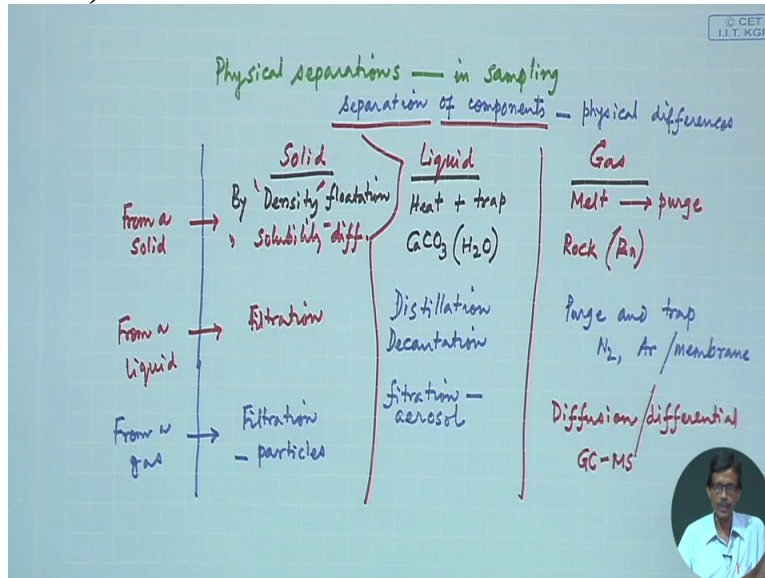 © CET
I.I.T. KGP
Physical separations — in sampling
Separation of components – physical differences
Solid
Liquid
Gas
From a
solid
By "Density" floatation
, solubility – diff.
Heat + trap
CaCO3 (H2O)
Melt → purge
Rock (Rn)
From a
liquid
Filtration
Distillation
Decantation
Purge and trap
N2, Ar / membrane
From a
gas
Filtration
– particles
fitration –
aerosol
Diffusion / differential
GC-MS